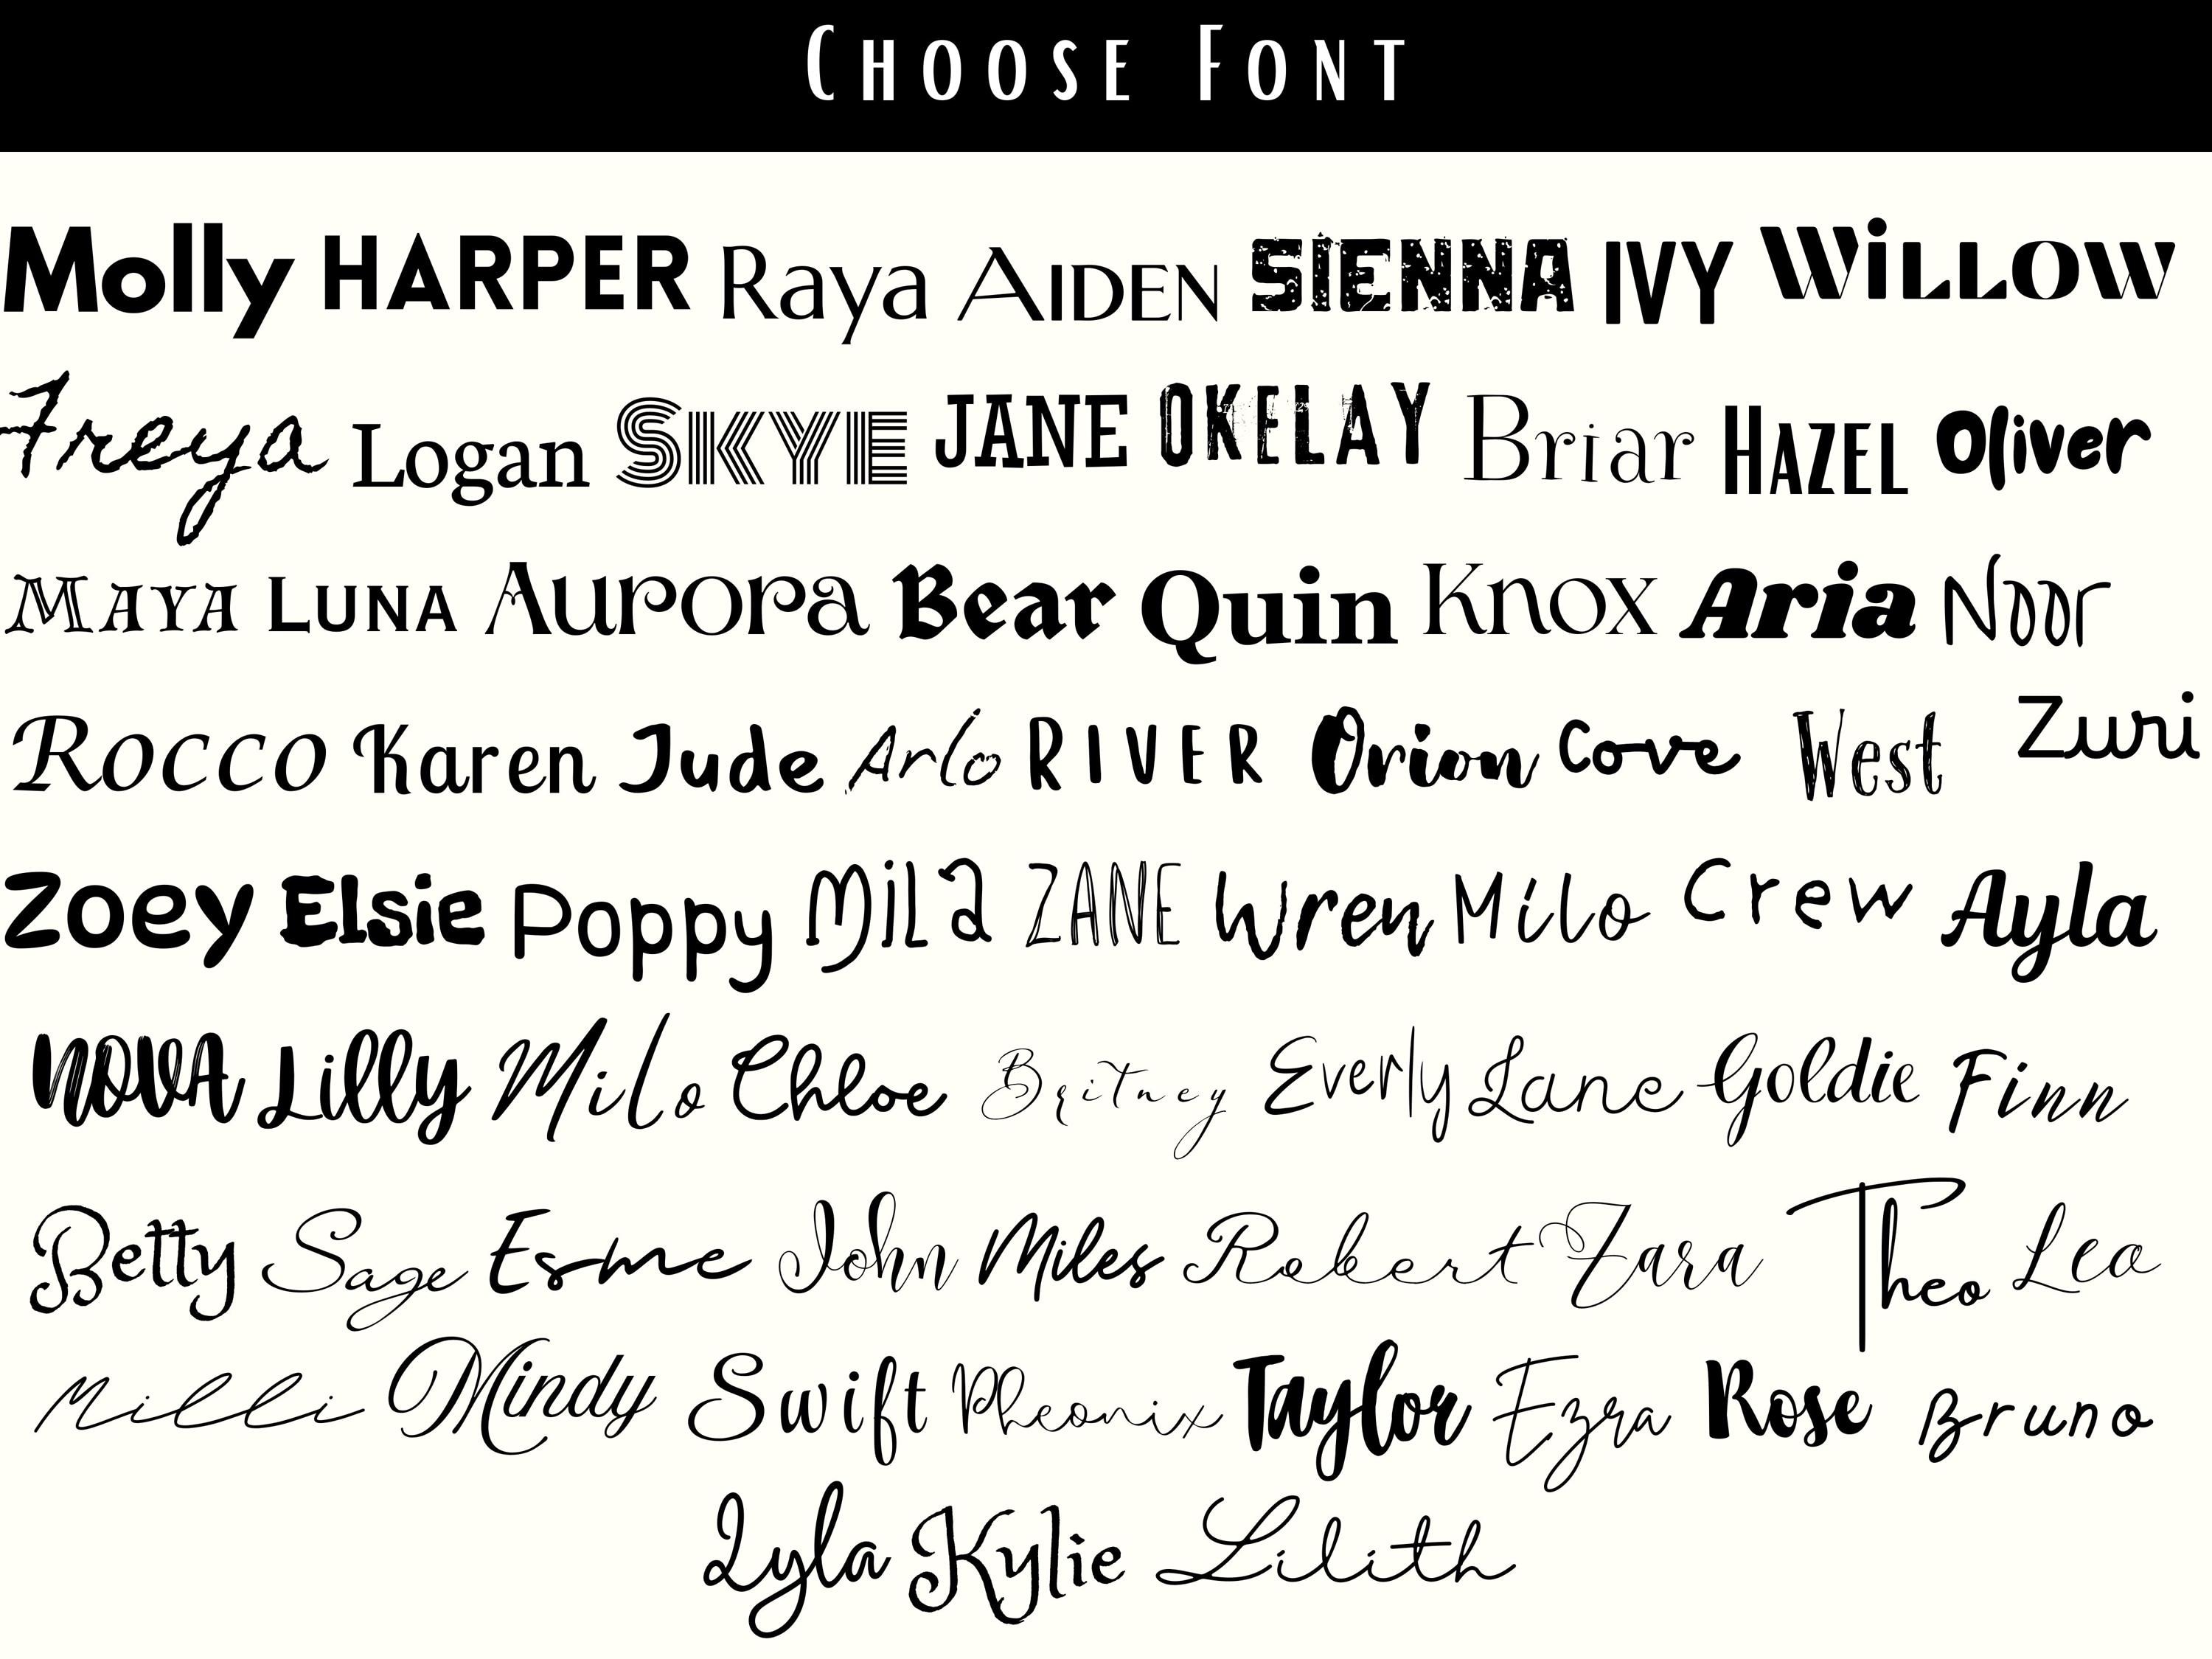 CHOOSE FONT
Molly HARPER Raya AIDEN SIENNA IVY WiLLOW
Freya Logan SKYE JANE OKELAY Briar HAZEL Oliver
MAYA LUNA Aurora Bear Quin Knox Aria Noor
ROCCO Karen Jude Arlo RIVER Orion Cove West Zuri
Zoey Elsie Poppy MiLa ZANE Wren Milo Crew Ayla
NOVA Lilly Milo Chloe Britney Everly Lane Goldie Finn
Betty Sage Esme John Miles Robert Zara Theo Leo
Milli Mindy Swift Pheonix Taylor Ezra Rose Bruno
Lyla Kylie Lilith